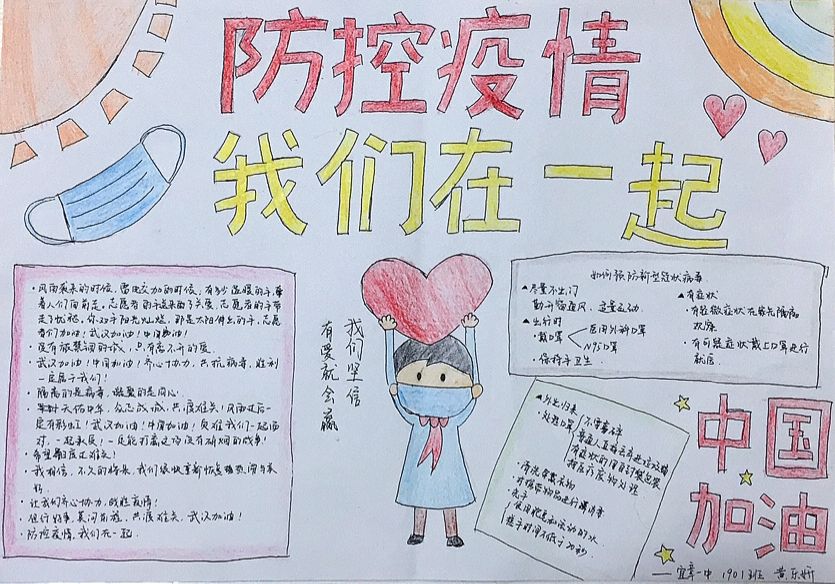 防控疫情
我们在一起
·风雨袭来的时候,雷电交加的时候,有多少温暖的手,牵
着人们向前走。志愿者的手送来的了关爱,志愿者的手带
走了忧愁。你双手阳光灿烂,那是太阳伸出的手。志愿
者们加油!武汉加油!中国加油!
·没有被禁锢的城,只有离不开的爱。
·武汉加油!中国加油!齐心协力,共抗病毒,胜利
一定属于我们!
·隔离的是病毒,凝聚的是同心。
·众志成城,共渡难关!风雨过后一
定有彩虹!武汉加油!中国加油!负难我们一起面
对,一起承担!一定能打赢这场没有硝烟的战争!
·希望共渡难关!
·我相信,不久的将来,我们很快重新
·让我们齐心协力,战胜疫情!
·但行好事,莫问前程,共渡难关,武汉加油!
·防控疫情,我们在一起。
我们坚信
有爱就会赢
如何预防新型冠状病毒
▲尽量不出门
勤开窗通风,适量运动。
▲出行时
·戴口罩
医用外科口罩
N95口罩
·保持手卫生
▲有症状
·有轻微症状在家先隔离
观察
·有可疑症状戴上口罩进行
就医。
▲外出归来
·处理口罩
不要乱丢
普通人直接丢弃进垃圾桶
有症状的用自封袋包装
按医疗废物处理
·清洗衣物
·洗手
使用肥皂和流动的水
洗手时间不低于20秒
中国
加油
——宜章一中 1901班 黄乐妍